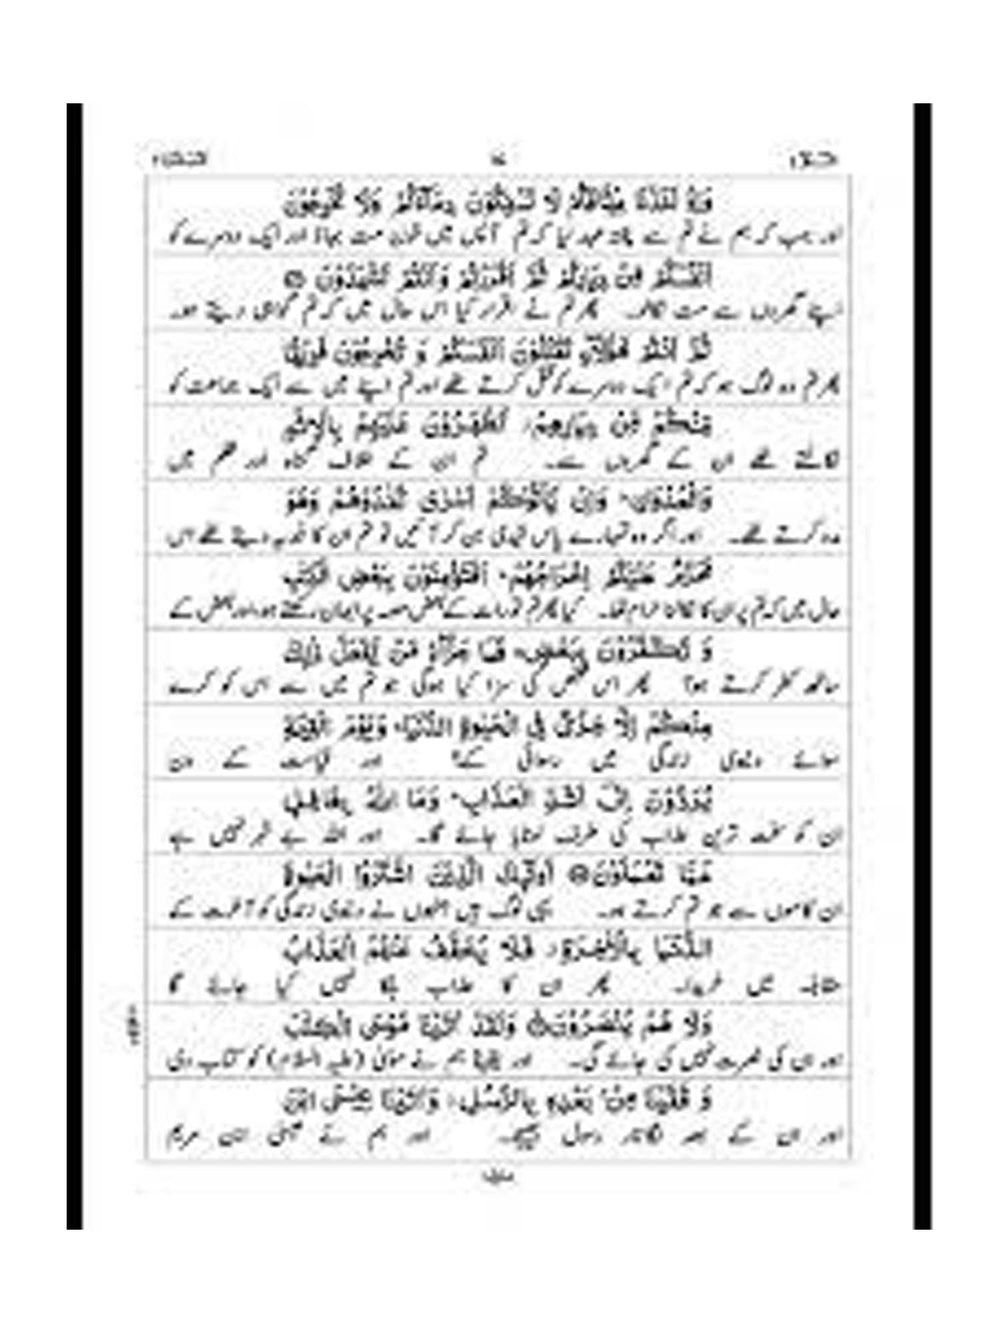 البقرة ٢
وَ اِذْ اَخَذْنَا مِیْثَاقَكُمْ لَا تَسْفِكُوْنَ دِمَآءَكُمْ وَلَا تُخْرِجُوْنَ
اور جب کہ ہم نے تم سے پختہ عہد لیا کہ تم آپس میں خون مت بہانا اور ایک دوسرے کو
اَنْفُسَكُمْ مِّنْ دِیَارِكُمْ ثُمَّ اَقْرَرْتُمْ وَاَنْتُمْ تَشْهَدُوْنَ
اپنے گھروں سے مت نکالنا۔ پھر تم نے اقرار کیا اس حال میں کہ تم گواہی دیتے ہو۔
ثُمَّ اَنْتُمْ هٰۤؤُلَآءِ تَقْتُلُوْنَ اَنْفُسَكُمْ وَ تُخْرِجُوْنَ فَرِیْقًا
پھر تم وہ لوگ ہو کہ تم ایک دوسرے کو قتل کرتے تھے اور تم اپنے میں سے ایک جماعت کو
مِّنْكُمْ مِّنْ دِیَارِهِمْ تَظٰهَرُوْنَ عَلَیْهِمْ بِالْاِثْمِ
نکالتے تھے ان کے گھروں سے۔ تم ان کے خلاف گناہ اور ظلم میں
وَالْعُدْوَانِ وَاِنْ یَّاْتُوْكُمْ اُسٰرٰی تُفٰدُوْهُمْ وَهُوَ
مدد کرتے تھے۔ اور اگر وہ تمہارے پاس قیدی بن کر آئیں تو تم ان کا فدیہ دیتے تھے اس
مُحَرَّمٌ عَلَیْكُمْ اِخْرَاجُهُمْ اَفَتُؤْمِنُوْنَ بِبَعْضِ الْكِتٰبِ
حال میں کہ تم پر ان کا نکالنا حرام تھا۔ کیا پھر تم تورات کے بعض حصہ پر ایمان رکھتے ہو اور بعض کے
وَ تَكْفُرُوْنَ بِبَعْضٍ فَمَا جَزَآءُ مَنْ یَّفْعَلُ ذٰلِكَ
ساتھ کفر کرتے ہو؟ پھر اس شخص کی سزا کیا ہوگی جو تم میں سے اس کو کرے
مِنْكُمْ اِلَّا خِزْیٌ فِی الْحَیٰوةِ الدُّنْیَا وَیَوْمَ الْقِیٰمَةِ
سوائے دنیوی زندگی میں رسوائی کے؟ اور قیامت کے دن
یُرَدُّوْنَ اِلٰۤی اَشَدِّ الْعَذَابِ وَمَا اللّٰهُ بِغَافِلٍ
ان کو سخت ترین عذاب کی طرف لوٹایا جائے گا۔ اور اللہ بے خبر نہیں ہے
عَمَّا تَعْمَلُوْنَ اُولٰٓئِكَ الَّذِیْنَ اشْتَرَوُا الْحَیٰوةَ
ان کاموں سے جو تم کرتے ہو۔ یہی لوگ ہیں جنہوں نے دنیوی زندگی کو آخرت کے
الدُّنْیَا بِالْاٰخِرَةِ فَلَا یُخَفَّفُ عَنْهُمُ الْعَذَابُ
مقابلہ میں خریدا۔ پھر ان کا عذاب ہلکا نہیں کیا جائے گا
وَلَا هُمْ یُنْصَرُوْنَ وَلَقَدْ اٰتَیْنَا مُوْسَی الْكِتٰبَ
اور ان کی نصرت نہیں کی جائے گی۔ اور یقیناً ہم نے موسیٰ (علیہ السلام) کو کتاب دی
وَ قَفَّیْنَا مِنْۢ بَعْدِهٖ بِالرُّسُلِ وَاٰتَیْنَا عِیْسَی ابْنَ
اور ان کے بعد لگاتار رسول بھیجے۔ اور ہم نے عیسیٰ ابن مریم